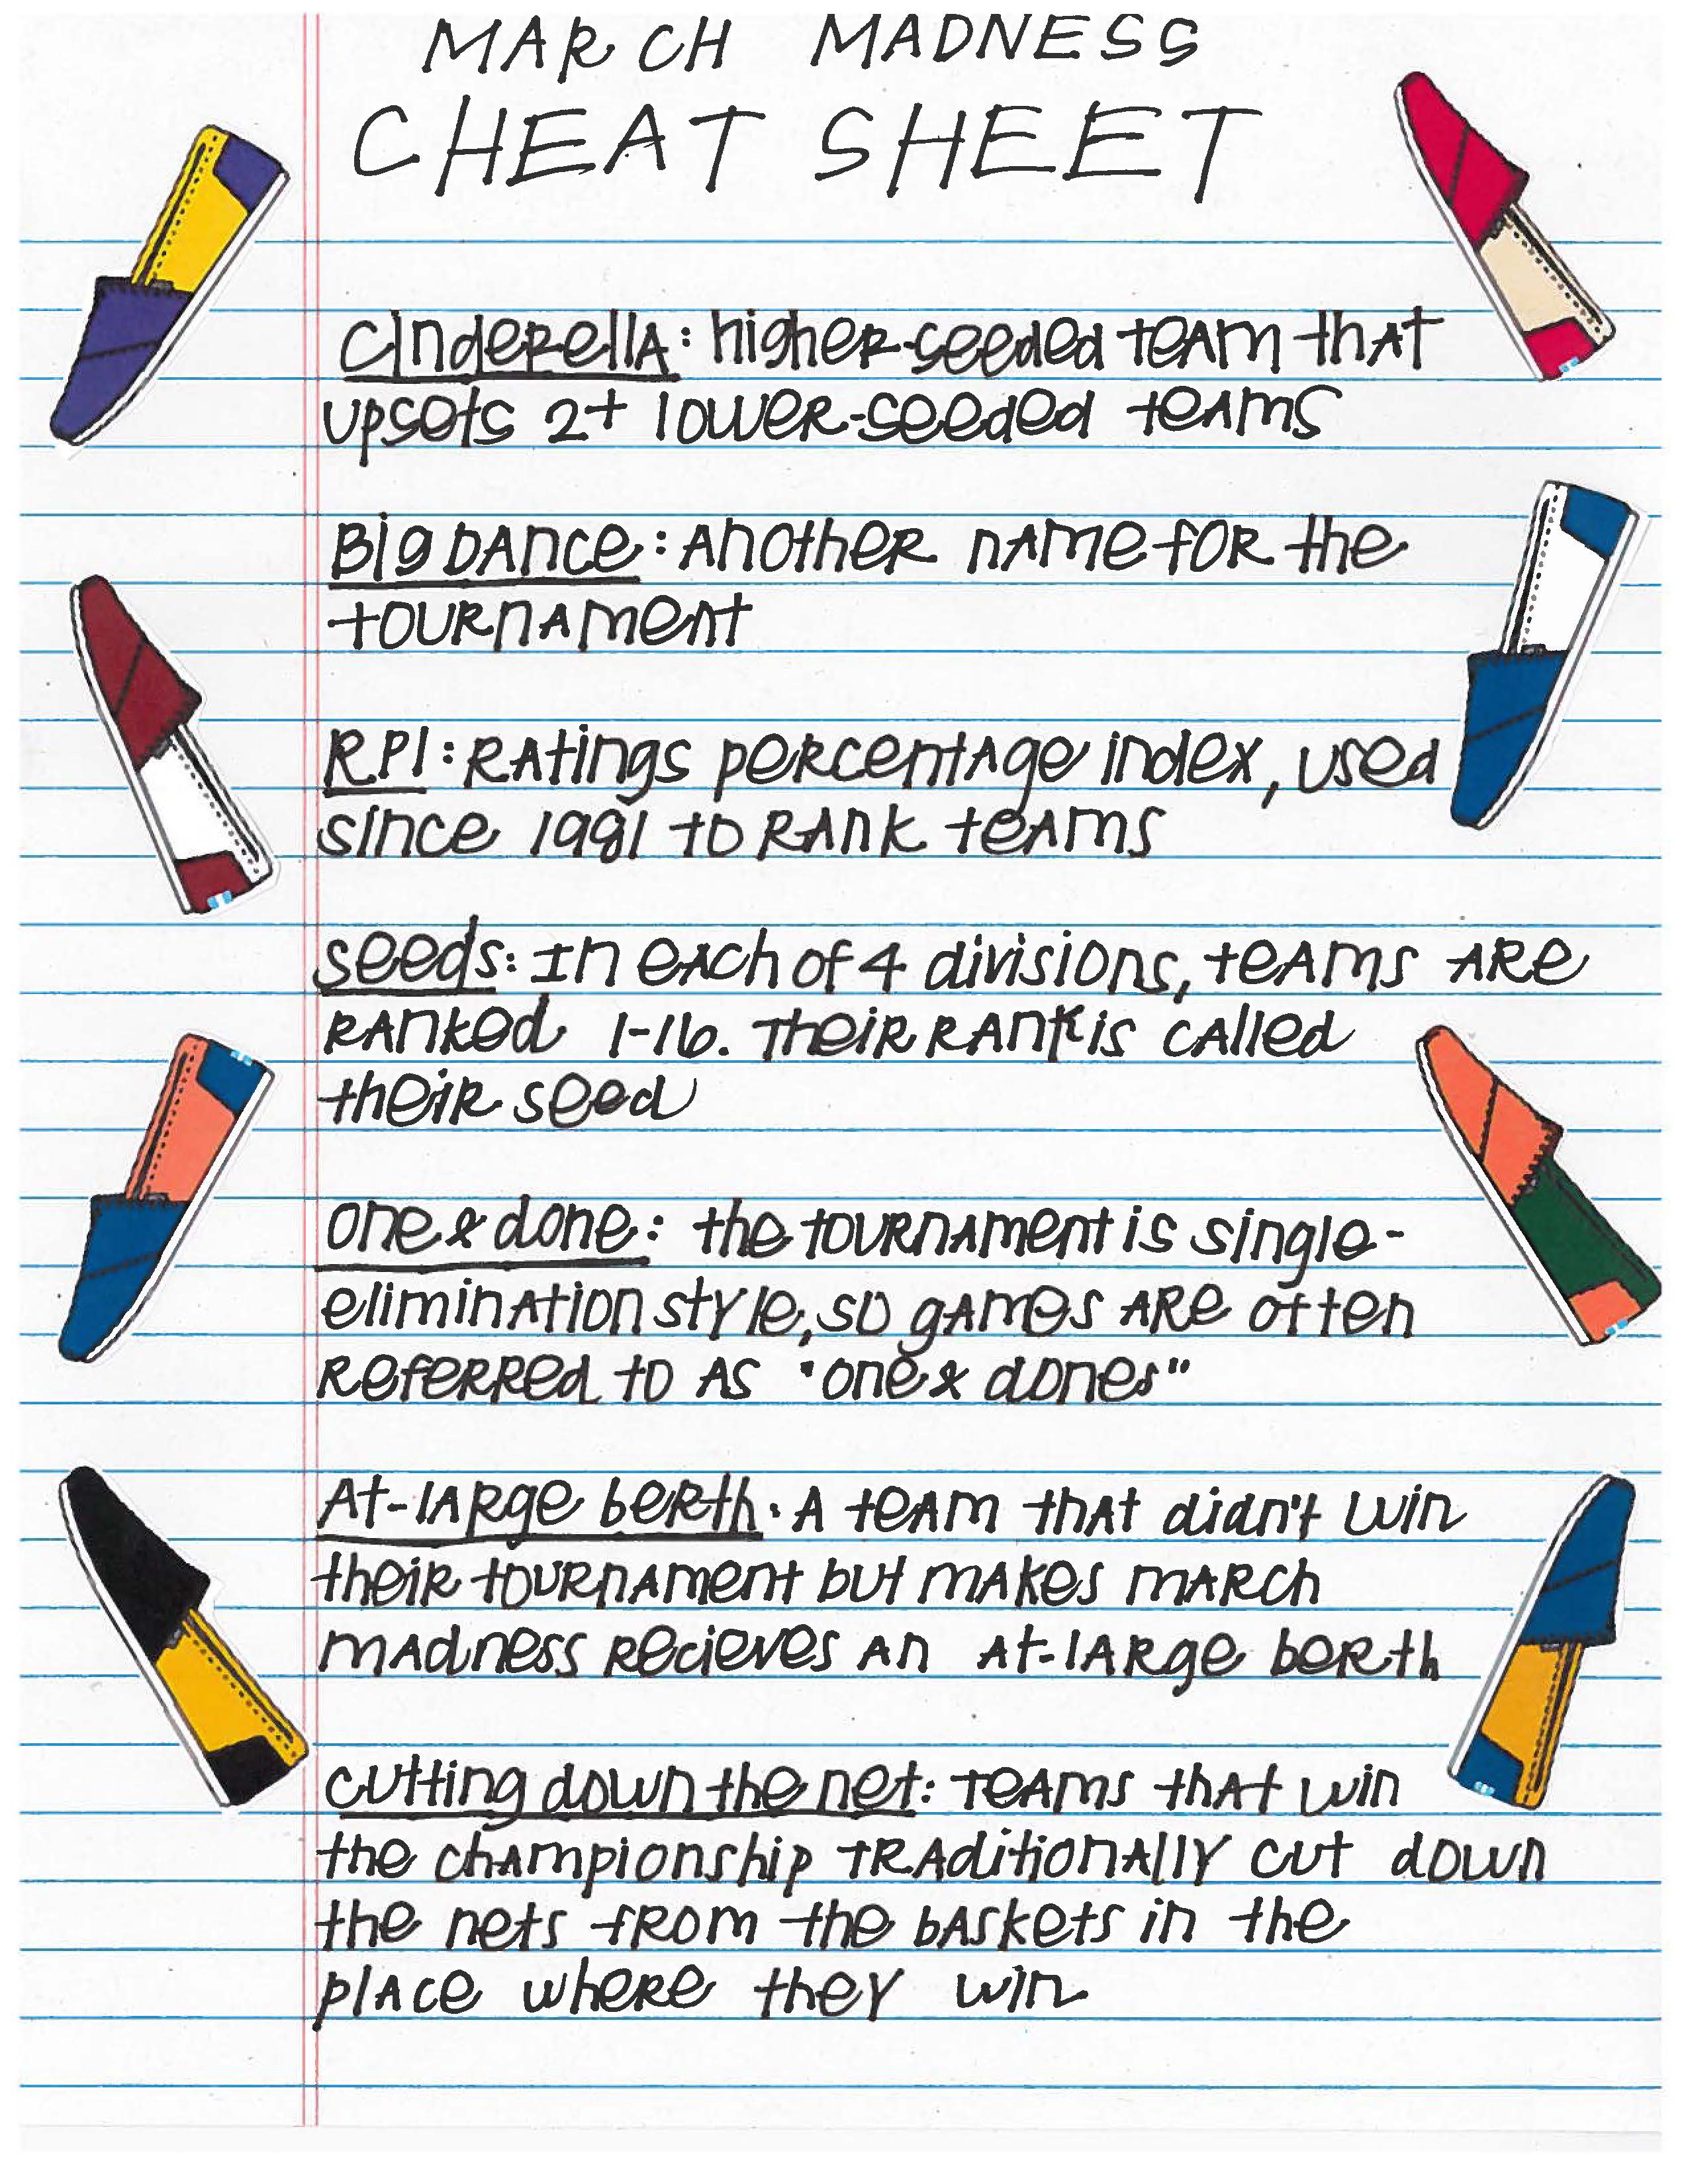 MARCH MADNESS
CHEAT SHEET
Cinderella: higher-seeded team that
upsets 2+ lower-seeded teams
Big Dance: Another name for the
tournament
RPI: Ratings percentage index, used
since 1981 to rank teams
Seeds: In each of 4 divisions, teams are
ranked 1-16. Their rank is called
their seed
One & done: the tournament is single-
elimination style, so games are often
referred to as "one & dones"
At-large berth: A team that didn't win
their tournament but makes march
madness recieves an at-large berth
Cutting down the net: Teams that win
the championship traditionally cut down
the nets from the baskets in the
place where they win